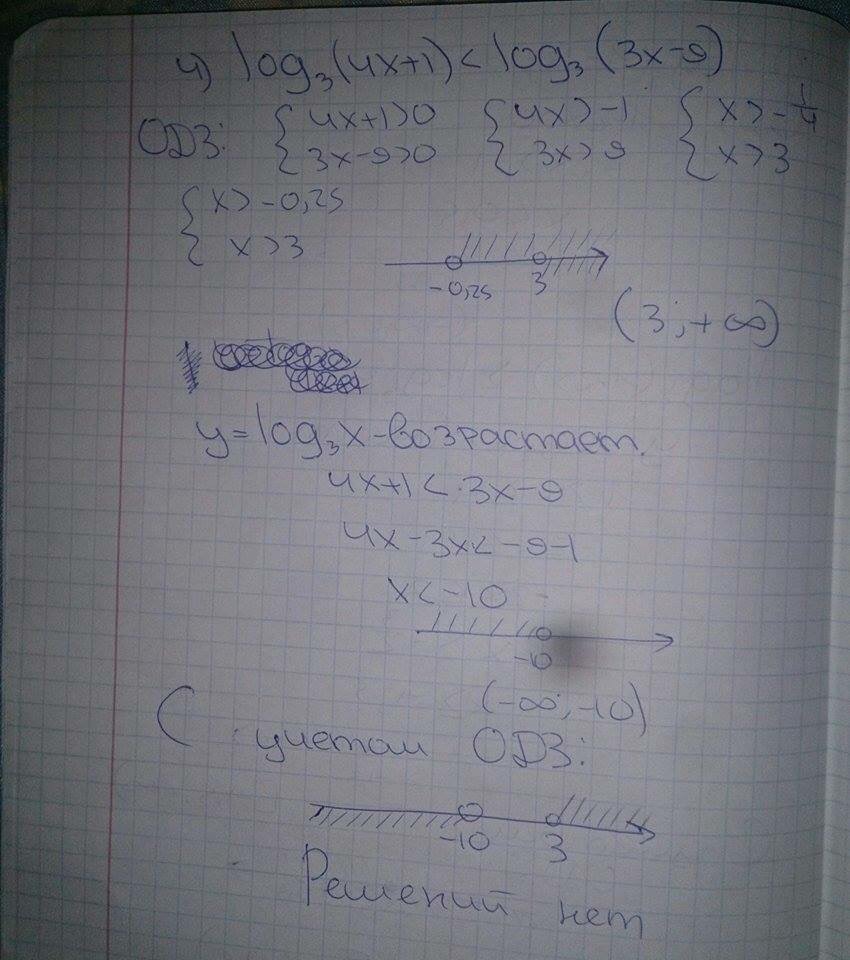 4) log₃(4x+1) < log₃(3x-9)
ОДЗ: { 4x+1>0 { 4x>-1 { x>-1/4
3x-9>0 3x>9 x>3
{ x>-0,25
x>3
-0,25 3
(3;+∞)
y=log₃x-возрастает.
4x+1<3x-9
4x-3x<-9-1
x<-10
-10
(-∞;-10)
С учетом ОДЗ:
-10 3
Решений нет